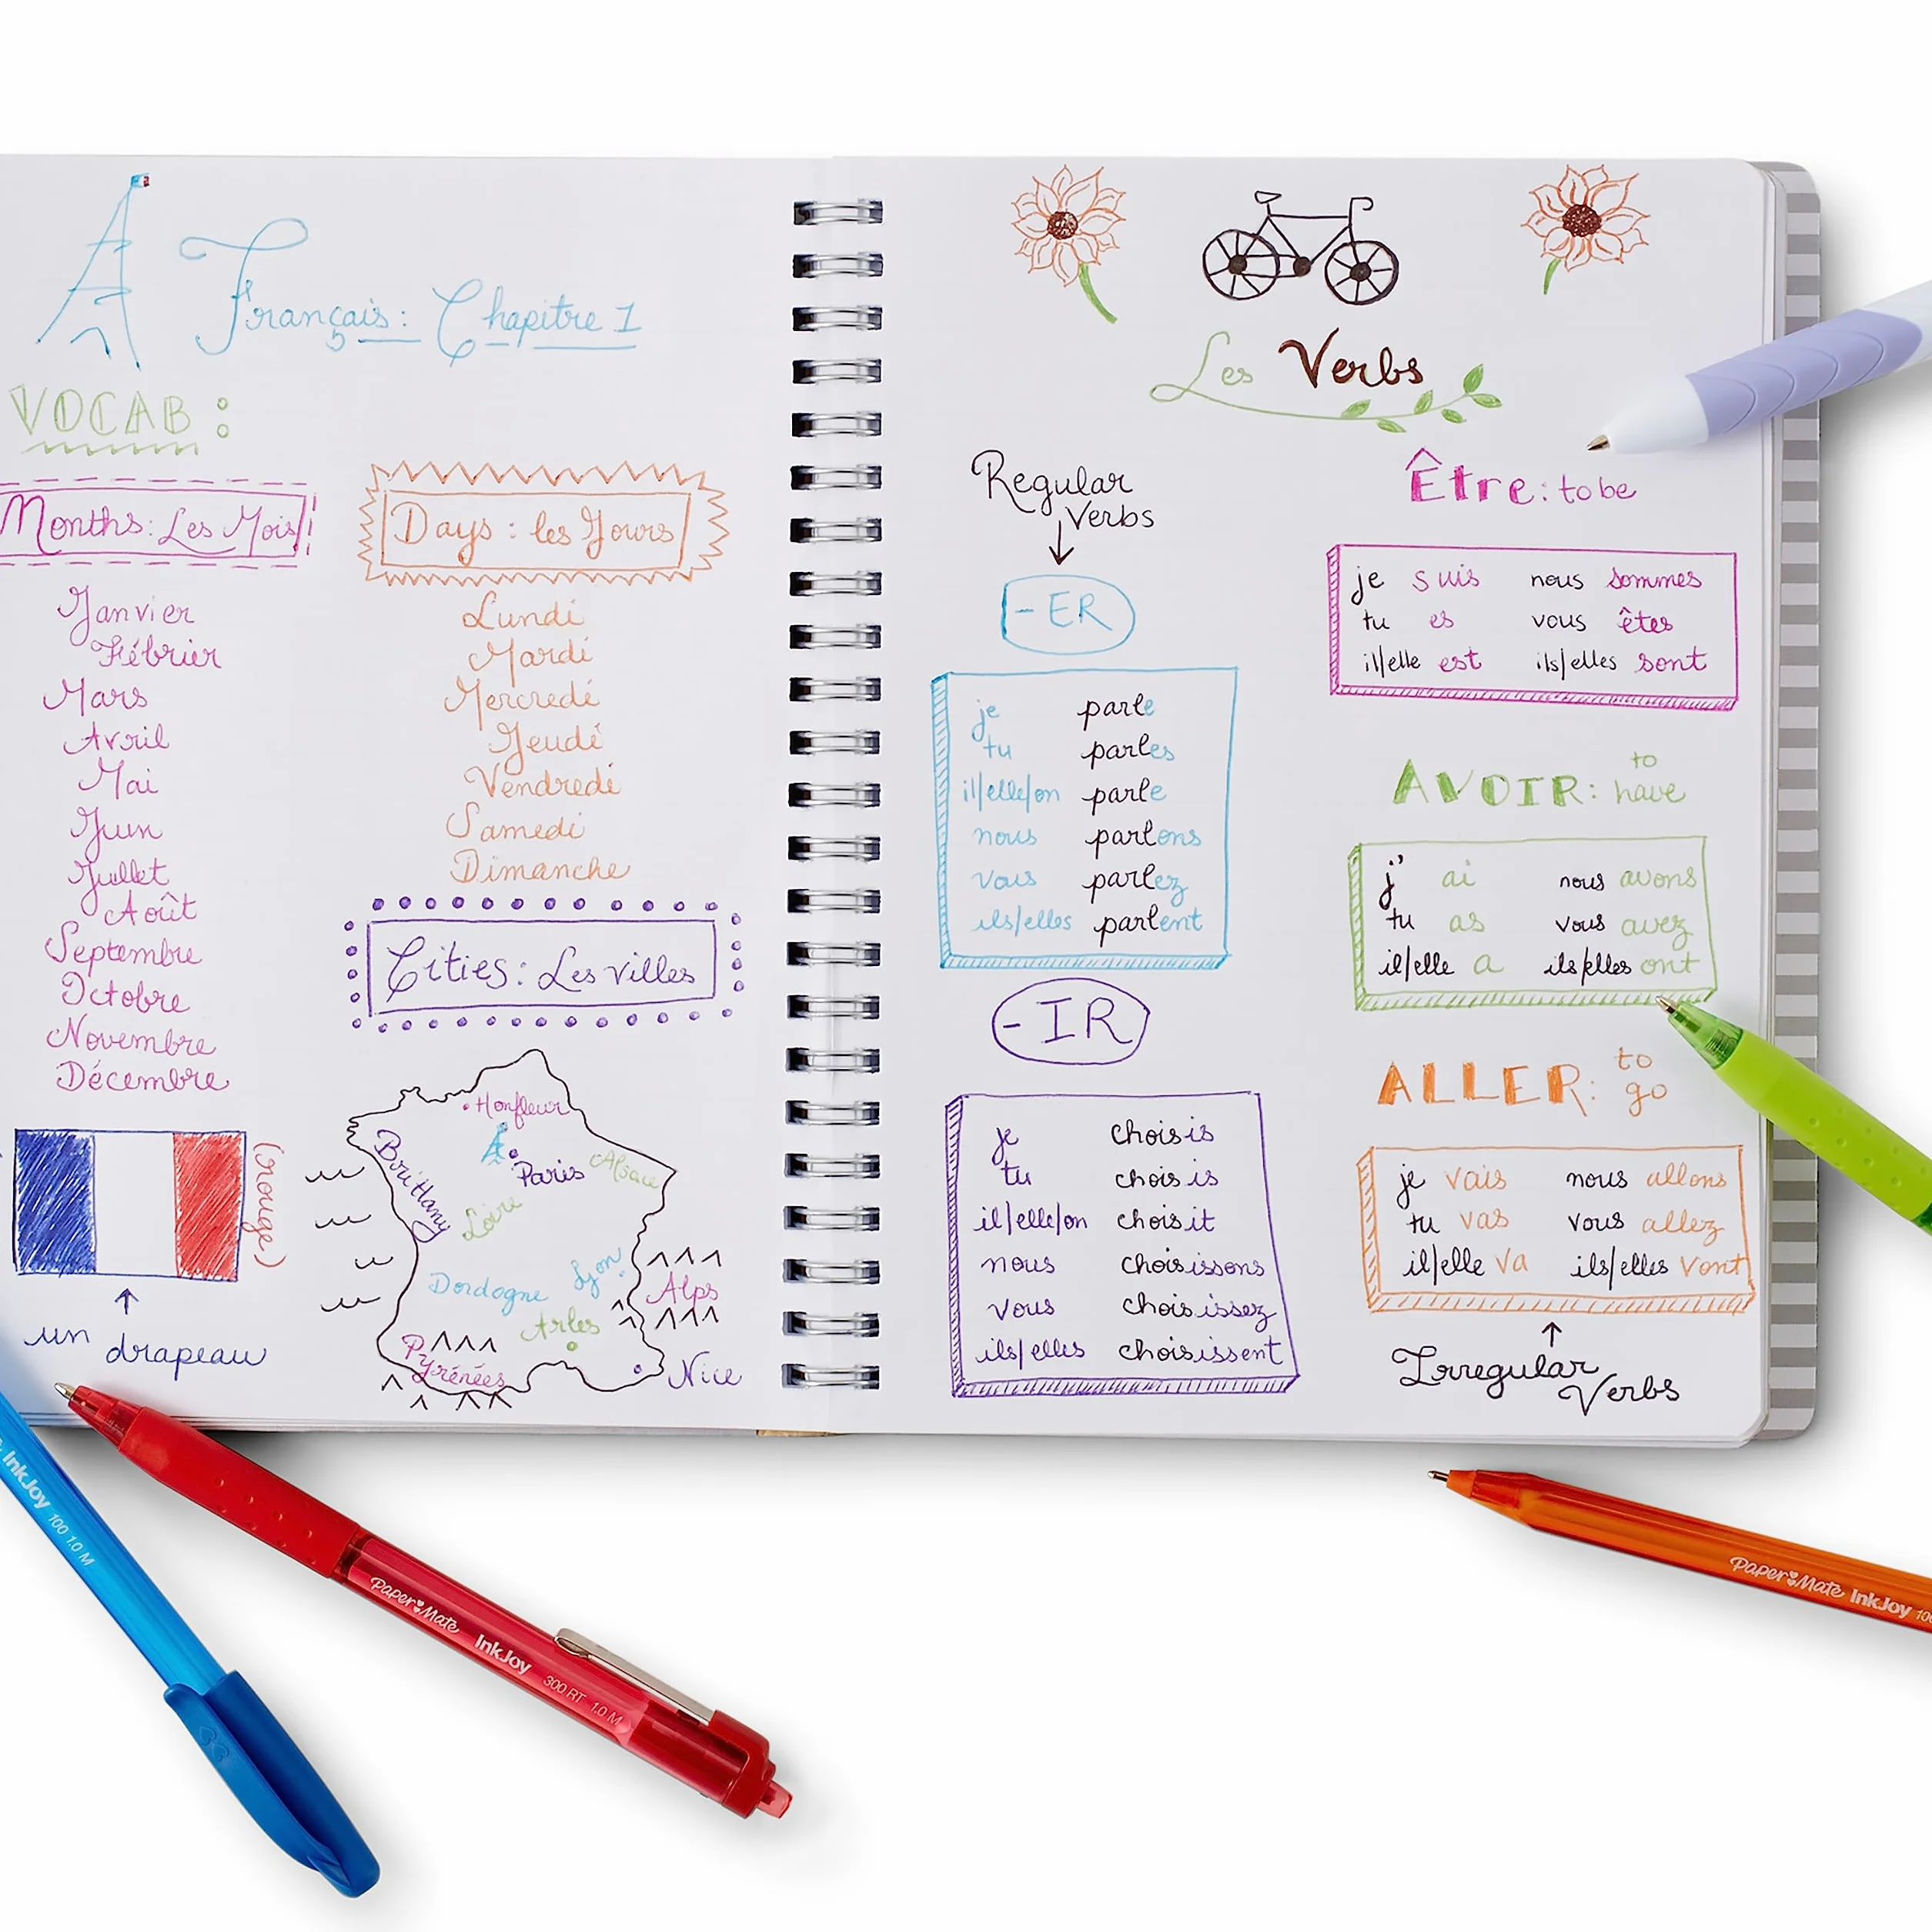 Français: Chapitre 1
VOCAB:
Months: Les Mois
Janvier
Fébrier
Mars
Avril
Mai
Juin
Jullet
Août
Septembre
Octobre
Novembre
Décembre
(rouge)
un drapeau
Days: les Jours
Lundi
Mardi
Mercredi
Jeudi
Vendredi
Samedi
Dimanche
Cities: Les Villes
Honfleur
Paris
Alsace
Brittany
Loire
Dordogne
Lyon
Alps
Arles
Pyrénées
Nice
Les Verbs
Regular
Verbs
-ER
je parle
tu parles
il/elle/on parle
nous parlons
vous parlez
ils/elles parlent
-IR
je choisis
tu choisis
il/elle/on choisit
nous choisissons
vous choisissez
ils/elles choisissent
Être: to be
je suis nous sommes
tu es vous êtes
il/elle est ils/elles sont
AVOIR: to have
j' ai nous avons
tu as vous avez
il/elle a ils/elles ont
ALLER: to go
je vais nous allons
tu vas vous allez
il/elle va ils/elles vont
Irregular
Verbs
InkJoy 100 1.0 M
Paper Mate InkJoy 300 RT 1.0 M
Paper Mate InkJoy 100